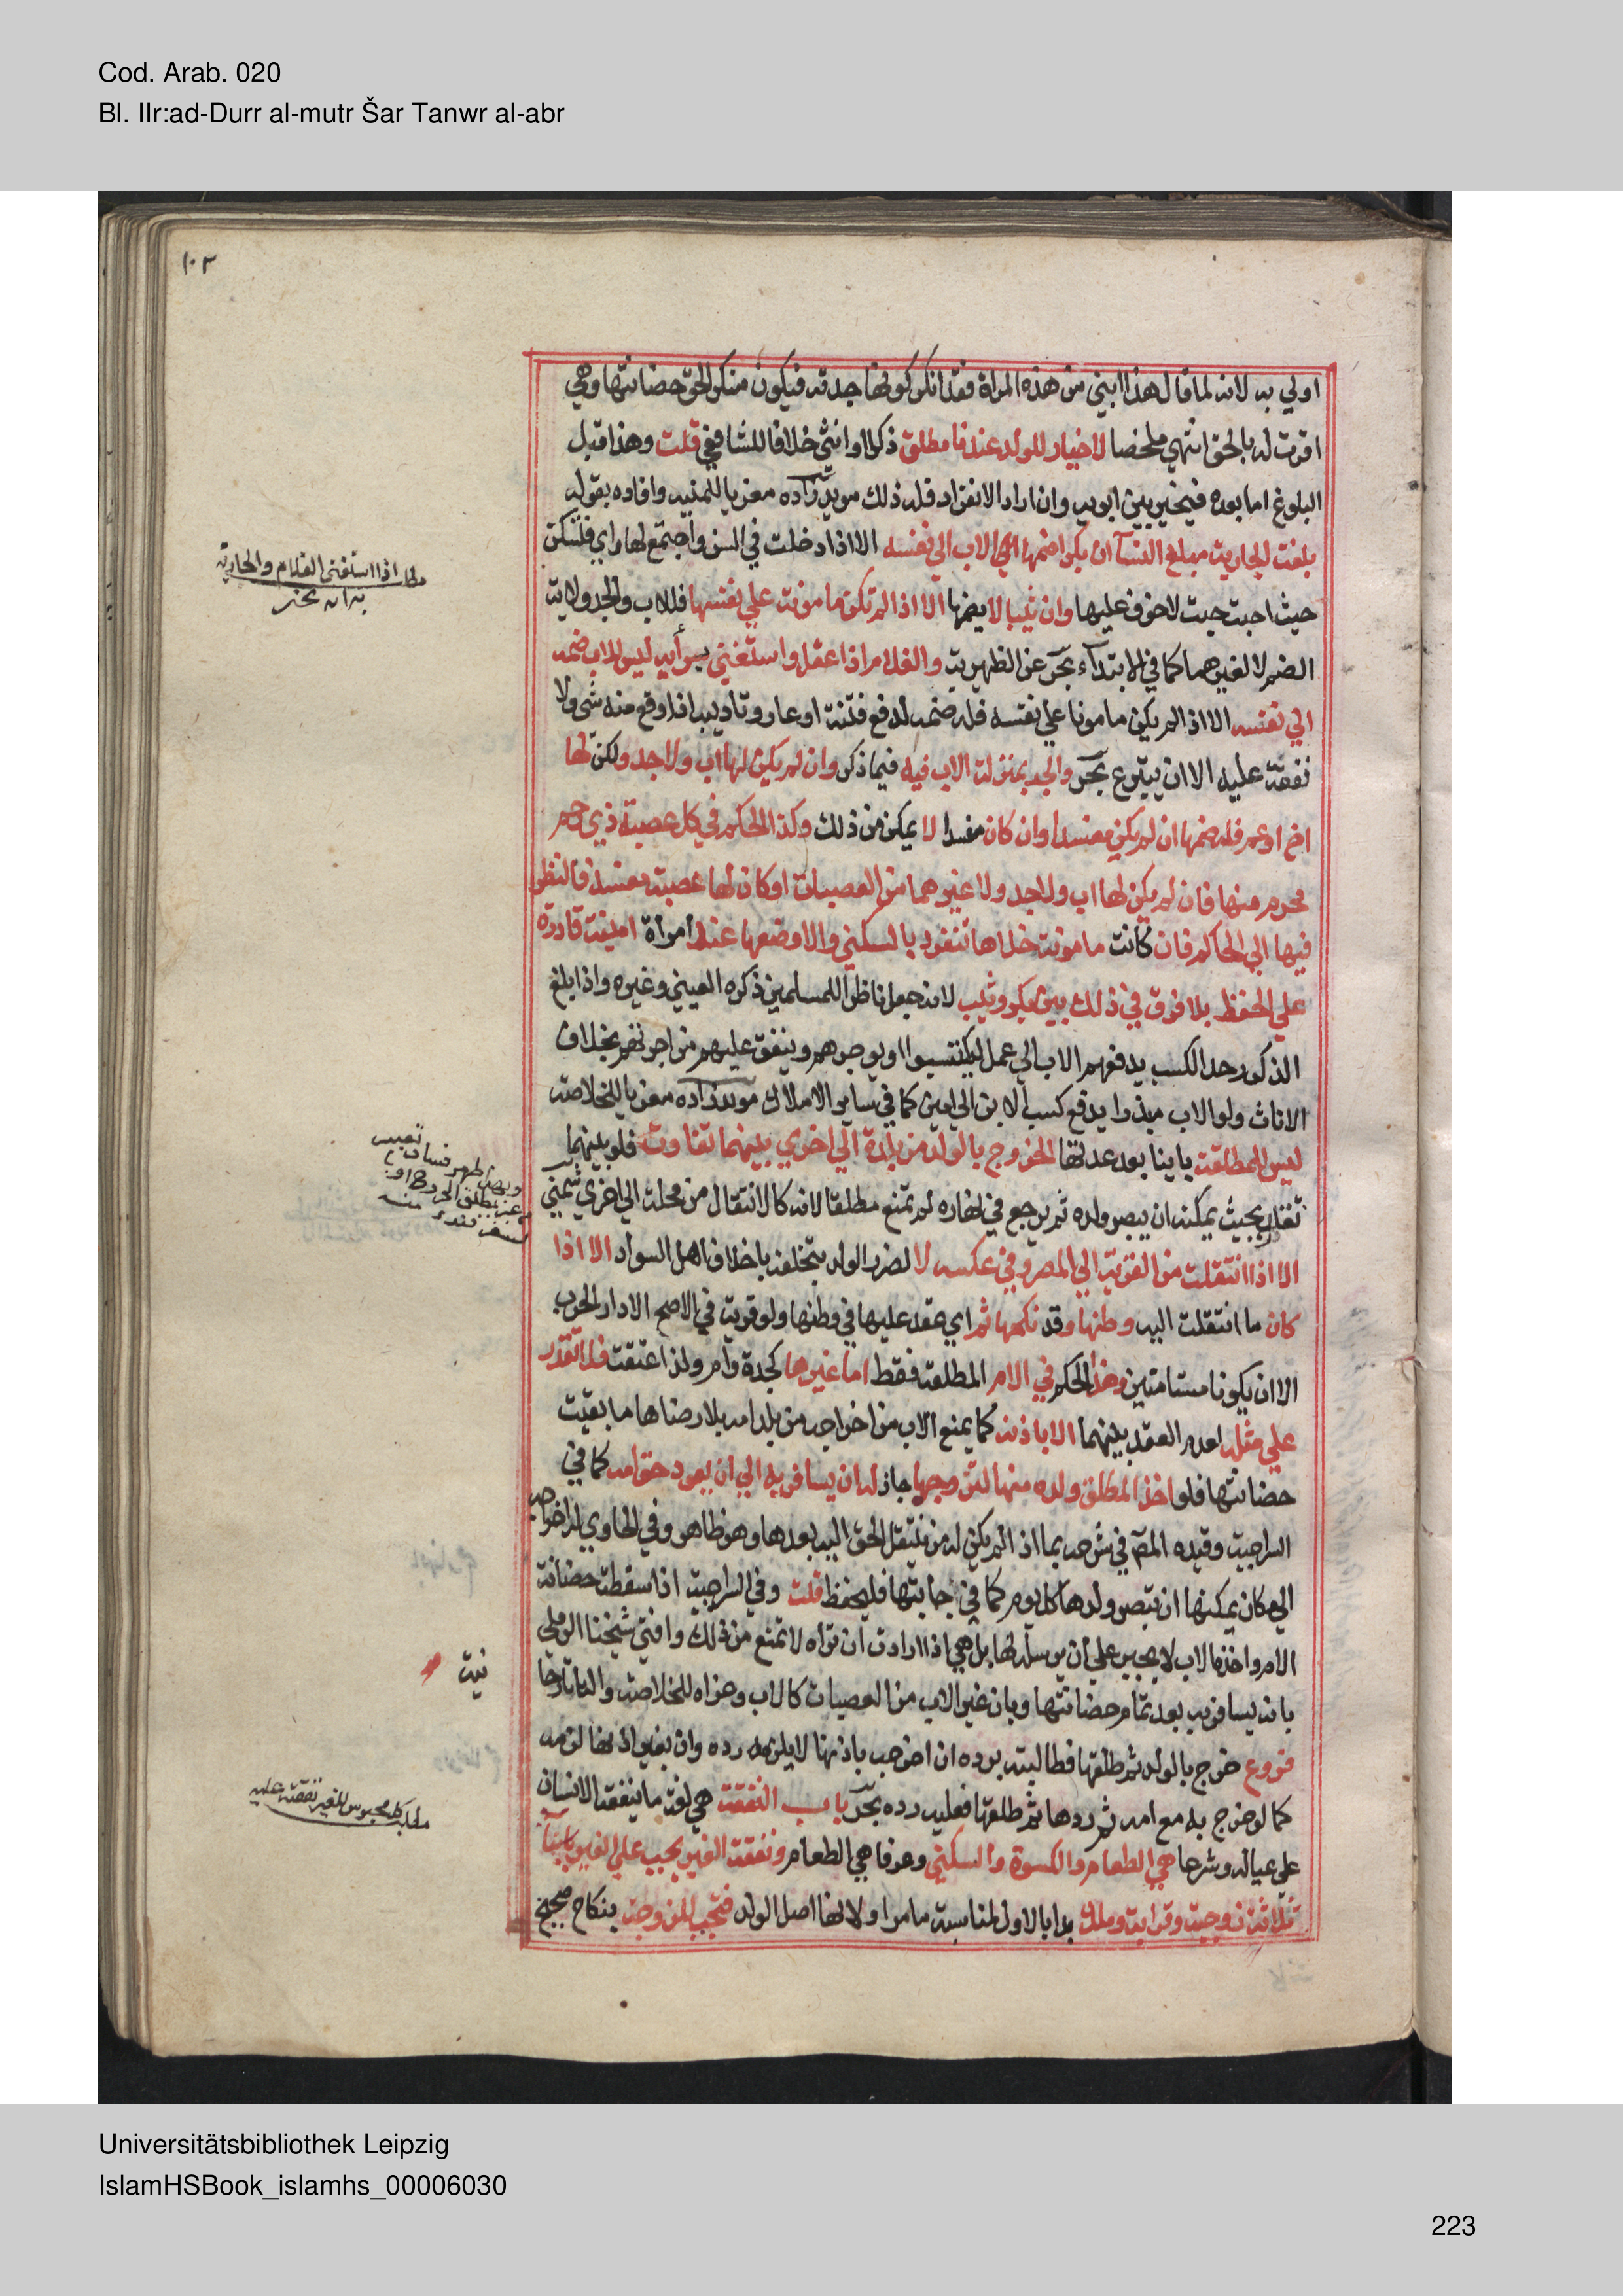 Cod. Arab. 020
Bl. IIr:ad-Durr al-mutr Šar Tanwr al-abr
١٠٢
اولي به لانه لما قال هذا ابني من هذه المراة فقد انكر كونها جدته فيكون منكرا لحق حضانتها وهي
اقرت له بالحق انتهي ملخصا لا خيار للولد عندنا مطلق ذكرا او انثي خلافا للشافعي قلت وهذا قبل
البلوغ اما بعده فيخير بين ابويه وان اراد الانفراد فله ذلك مويد زاده معزيا للمنيه وافاده بقوله
بلغت الجارية مبلغ النسآ ان بكرا ضمها الاب الي نفسه الا اذا دخلت في السن واجتمع لها راي فتسكن
حيث احبت حيث لا خوف عليها وان ثيبا لا يضمها الا اذا لم تكن مامونة علي نفسها فللاب والجد ولاية
الضم لا لغيرهما كما في الابتدآء بحر عن الظهيرية والغلام اذا عقل واستغني برأيه ليس للاب ضمه
الي نفسه الا اذا لم يكن مامونا علي نفسه فله ضمه لدفع فتنة او عار وتاديبه اذا وقع منه شي ولا
نفقة عليه الا ان يتبرع بحر والجد بمنزلة الاب فيه فيما ذكر وان لم يكن لها اب ولا جد ولكن لها
اخ او عم فله ضمها ان لم يكن مفسدا وان كان مفسدا لا يمكن من ذلك وكذا الحكم في كل عصبة ذي رحم
محرم منها فان لم يكن لها اب ولا جد ولا غيرهما من العصبات او كان لها عصبة مفسد فالنظر
فيها الي الحاكم فان كانت مامونة خلاها تنفرد بالسكني والا وضعها عند امرأة امينة قادرة
علي الحفظ بلا فرق في ذلك بين بكر وثيب لانه جعل ناظرا للمسلمين ذكره العيني وغيره واذا بلغ
الذكور حد الكسب يدفعهم الاب الي عمل ليكتسبوا او يوجرهم وينفق عليهم من اجرتهم بخلاف
الاناث ولو الاب مبذرا يدفع كسب الابن الي امين كما في ساير الاملاك مويد زاده معزيا للخلاصة
ليس للمطلقة باينا بعد عدتها الخروج بالولد من بلدة الي اخري بينهما تفاوت فلو بينهما
تفاوت بحيث يمكنه ان يبصر ولده ثم يرجع في نهاره لم تمنع مطلقا لانه كالانتقال من محلة الي اخري شمني
الا اذا انتقلت من القرية الي المصر وفي عكسه لا لضرر الولد بتخلقه باخلاق اهل السواد الا اذا
كان ما انتقلت اليه وطنها وقد نكحها ثم اي عقد عليها في وطنها ولو قرية في الاصح الا دار الحرب
الا ان يكونا مستامنين وهذا الحكم في الام المطلقة فقط اما غيرها كجدة وام ولد اعتقت فلا تقدر
علي مثله لعدم العقد بينهما الا باذنه كما يمنع الاب من اخراجه من بلد امه بلا رضاها ما بقيت
حضانتها فلو اخذ المطلق ولده منها لتزوجها جاز له ان يسافر به الي ان يعود حق امه كما في
السراجية وقيده المصـ في شرحه بما اذا لم يكن له من ينتقل الحق اليه بعدها وهو ظاهر وفي الحاوي له اخراجه
الي مكان يمكنها ان تبصر ولدها كل يوم كما في جانبها فليحفظ قلت وفي السراجية اذا سقطت حضانة
الام واخذه الاب لا يجبر علي ان يرسله لها بل هي اذا ارادت ان تراه لا تمنع من ذلك وافتي شيخنا الرملي
بانه يسافر به بعد تمام حضانتها وبان غير الاب من العصبات كالاب وعزاه للخلاصة والتاتارخا
فروع خرج بالولد ثم طلقها فطالبته برده ان اخرجه باذنها لا يلزمه رده وان بغير اذنها لزمه
كما لو خرج به مع امه ثم ردها ثم طلقها فعليه رده بحر باب النفقة هي لغة ما ينفقه الانسان
علي عياله وشرعا هي الطعام والكسوة والسكني وعرفا هي الطعام ونفقة الغير تجب علي الغير باسباب
ثلاثة زوجية وقرابة وملك بدا بالاول لمناسبة ما مر او لانها اصل الولد فتجب للزوجة بنكاح صحيح
مطلب اذا استغني الغلام والجارية
نيت
مطلب كل محبوس للغير نفقته عليه
Universitätsbibliothek Leipzig
IslamHSBook_islamhs_00006030
223